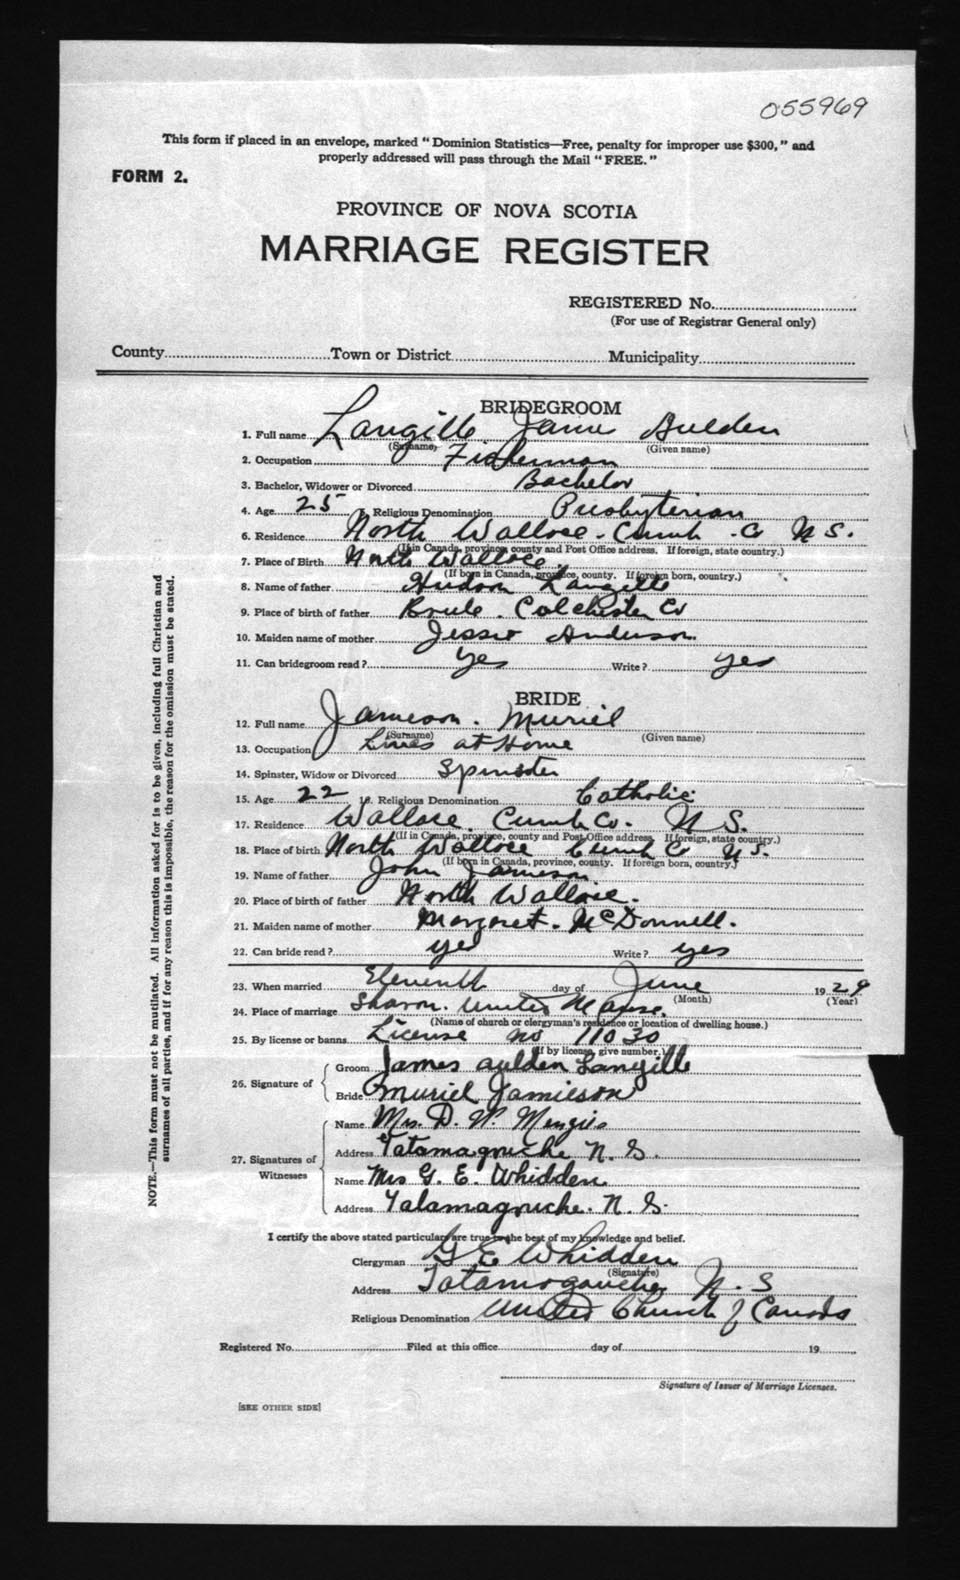 055969
This form if placed in an envelope, marked "Dominion Statistics—Free, penalty for improper use $300," and
properly addressed will pass through the Mail "FREE."
FORM 2.
PROVINCE OF NOVA SCOTIA
MARRIAGE REGISTER
REGISTERED No.
(For use of Registrar General only)
County Town or District Municipality
BRIDEGROOM
1. Full name Langille Aulden
(Surname) (Given name)
2. Occupation Fisherman
3. Bachelor, Widower or Divorced Bachelor
4. Age 25 Religious Denomination Presbyterian
6. Residence North Wallace - Cumb. Co N S.
(If in Canada, province, county and Post Office address. If foreign, state country.)
7. Place of Birth North Wallace
(If born in Canada, province, county. If foreign born, country.)
8. Name of father Hudson Langille
9. Place of birth of father Brule. Colchester Co
10. Maiden name of mother Jessie Anderson
11. Can bridegroom read? yes Write? yes
BRIDE
12. Full name Jameson. Muriel
(Surname) (Given name)
13. Occupation Lives at Home
14. Spinster, Widow or Divorced Spinster
15. Age 22 16. Religious Denomination Catholic
17. Residence Wallace. Cumb Co. N S.
(If in Canada, province, county and Post Office address. If foreign, state country.)
18. Place of birth North Wallace Cumb Co N S.
(If born in Canada, province, county. If foreign born, country.)
19. Name of father John Jamieson
20. Place of birth of father North Wallace.
21. Maiden name of mother Margaret. McDonnell.
22. Can bride read? yes Write? yes
23. When married Eleventh day of June 1929
(Month) (Year)
24. Place of marriage Sharon. United Manse.
(Name of church or clergyman's residence or location of dwelling house.)
25. By license or banns License no 11030
(If by license, give number.)
26. Signature of
Groom James Aulden Langille
Bride Muriel Jamieson
27. Signatures of Witnesses
Name Mrs. D. W. Menzies
Address Tatamagouche N. S.
Name Mrs G. E. Whidden
Address Tatamagouche. N. S.
I certify the above stated particulars are true to the best of my knowledge and belief.
Clergyman G E Whidden
(Signature)
Address Tatamagouche N. S
Religious Denomination United Church of Canada
Registered No. Filed at this office day of 19
Signature of Issuer of Marriage Licenses.
[SEE OTHER SIDE]
NOTE.—This form must not be mutilated. All information asked for is to be given, including full Christian and
surnames of all parties, and if for any reason this is impossible, the reason for the omission must be stated.